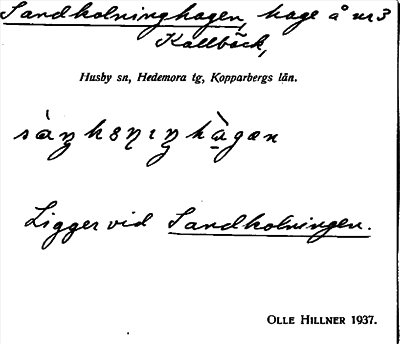 Sandholninghagen, hage å nr 3
Kallbäck,
Husby sn, Hedemora tg, Kopparbergs län.
Ligger vid Sandholningen.
OLLE HILLNER 1937.